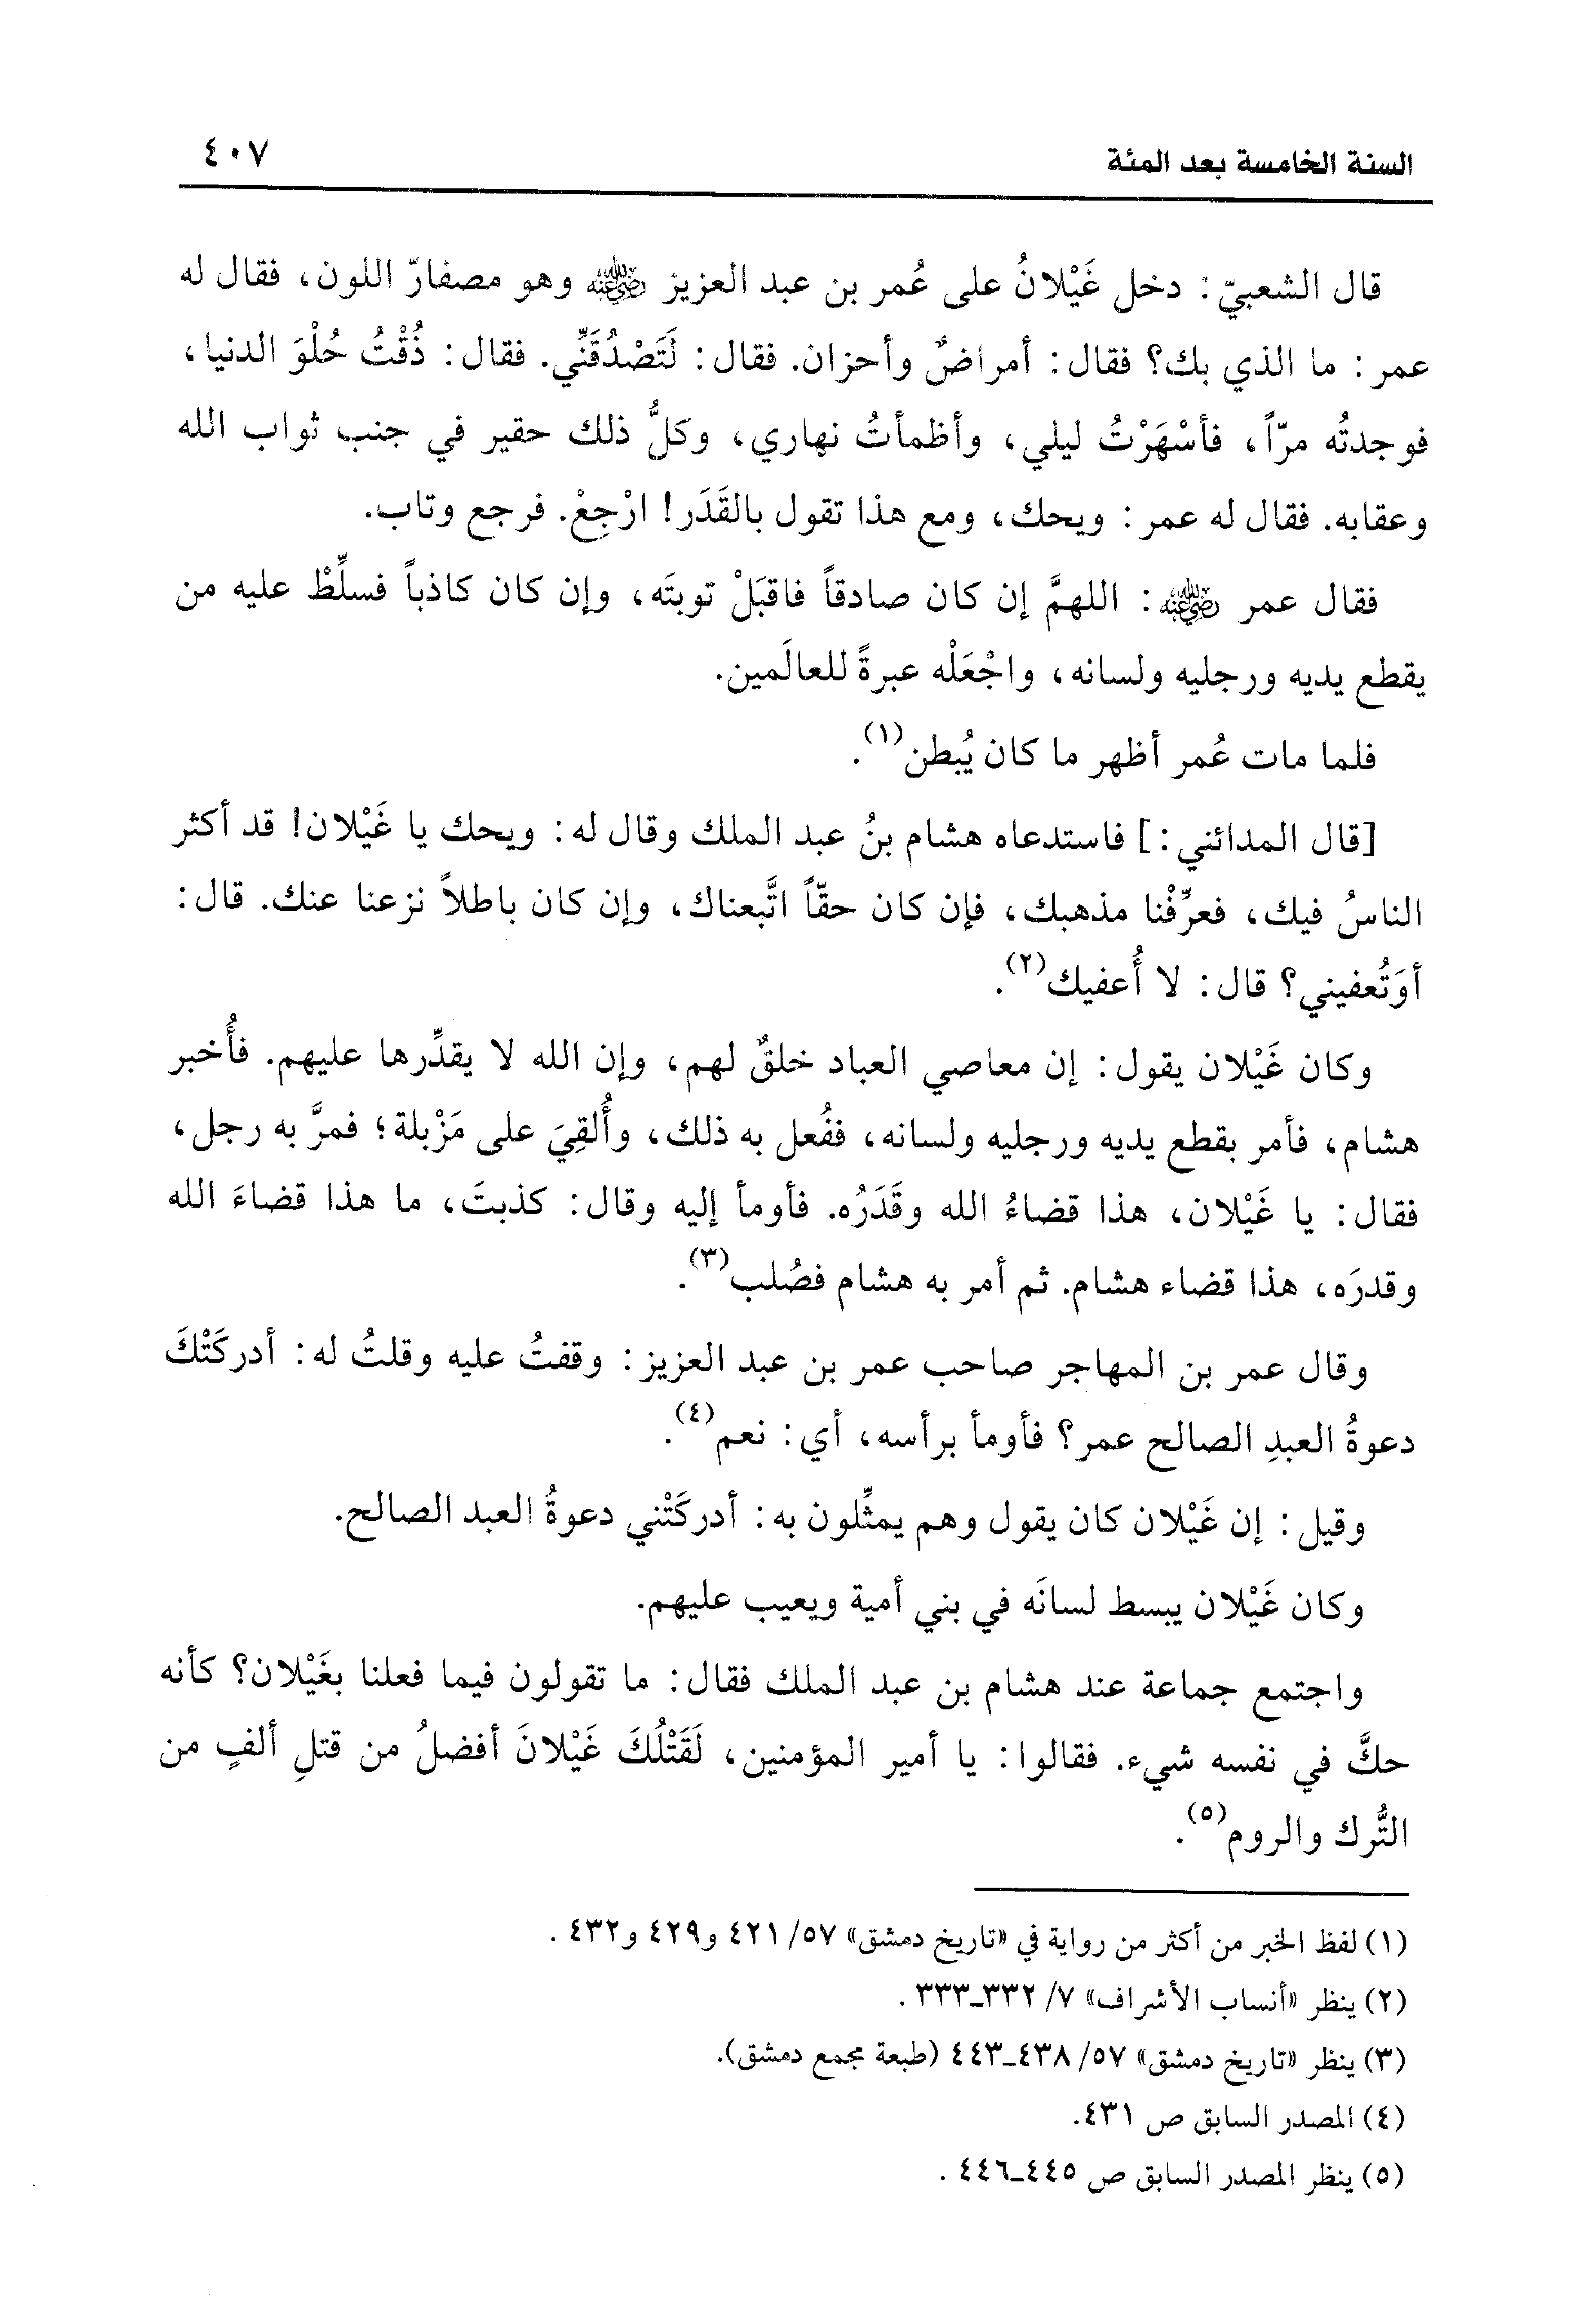 السنة الخامسة بعد المئة
٤٠٧
قال الشعبيّ: دخل غَيْلانُ على عُمر بن عبد العزيز ﵁ وهو مصفارّ اللون، فقال له
عمر: ما الذي بك؟ فقال: أمراضٌ وأحزان. فقال: لَتَصْدُقَنِّي. فقال: ذُقْتُ حُلْوَ الدنيا،
فوجدتُه مرّاً، فأسْهَرْتُ ليلي، وأظمأتُ نهاري، وكلُّ ذلك حقير في جنب ثواب الله
وعقابه. فقال له عمر: ويحك، ومع هذا تقول بالقَدَر! ارْجِعْ. فرجع وتاب.
فقال عمر ﵁: اللهمَّ إن كان صادقاً فاقبَلْ توبتَه، وإن كان كاذباً فسلِّطْ عليه من
يقطع يديه ورجليه ولسانه، واجْعَلْه عبرةً للعالَمين.
فلما مات عُمر أظهر ما كان يُبطن(١).
[قال المدائني:] فاستدعاه هشام بنُ عبد الملك وقال له: ويحك يا غَيْلان! قد أكثر
الناسُ فيك، فعرِّفْنا مذهبك، فإن كان حقّاً اتَّبعناك، وإن كان باطلاً نزعنا عنك. قال:
أوَتُعفيني؟ قال: لا أُعفيك(٢).
وكان غَيْلان يقول: إن معاصي العباد خلقٌ لهم، وإن الله لا يقدِّرها عليهم. فأُخبر
هشام، فأمر بقطع يديه ورجليه ولسانه، ففُعل به ذلك، وأُلقِيَ على مَزْبلة؛ فمرَّ به رجل،
فقال: يا غَيْلان، هذا قضاءُ الله وقَدَرُه. فأومأ إليه وقال: كذبتَ، ما هذا قضاءَ الله
وقدرَه، هذا قضاء هشام. ثم أمر به هشام فصُلب(٣).
وقال عمر بن المهاجر صاحب عمر بن عبد العزيز: وقفتُ عليه وقلتُ له: أدركَتْكَ
دعوةُ العبدِ الصالح عمر؟ فأومأ برأسه، أي: نعم(٤).
وقيل: إن غَيْلان كان يقول وهم يمثِّلون به: أدركَتْني دعوةُ العبد الصالح.
وكان غَيْلان يبسط لسانَه في بني أمية ويعيب عليهم.
واجتمع جماعة عند هشام بن عبد الملك فقال: ما تقولون فيما فعلنا بغَيْلان؟ كأنه
حكَّ في نفسه شيء. فقالوا: يا أمير المؤمنين، لَقَتْلُكَ غَيْلانَ أفضلُ من قتلِ ألفٍ من
التُّرك والروم(٥).
(١) لفظ الخبر من أكثر من رواية في «تاريخ دمشق» ٥٧/ ٤٢١ و٤٢٩ و٤٣٢ .
(٢) ينظر «أنساب الأشراف» ٧/ ٣٣٢-٣٣٣ .
(٣) ينظر «تاريخ دمشق» ٥٧/ ٤٣٨-٤٤٣ (طبعة مجمع دمشق).
(٤) المصدر السابق ص ٤٣١.
(٥) ينظر المصدر السابق ص ٤٤٥-٤٤٦ .